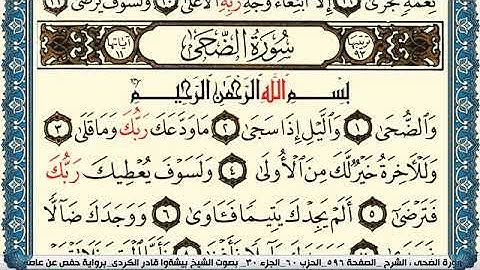 نِّعْمَةٍ تُجْزَىٰٓ ١٩ إِلَّا ٱبْتِغَآءَ وَجْهِ رَبِّهِ ٱلْأَعْلَىٰ ٢٠ وَلَسَوْفَ يَرْضَىٰ ٢١
ترتيبها ٩٣ سُورَةُ الضُّحَىٰ آياتها ١١
بِسْمِ ٱللَّهِ ٱلرَّحْمَٰنِ ٱلرَّحِيمِ
وَٱلضُّحَىٰ ١ وَٱلَّيْلِ إِذَا سَجَىٰ ٢ مَا وَدَّعَكَ رَبُّكَ وَمَا قَلَىٰ ٣
وَلَلْأٓخِرَةُ خَيْرٌ لَّكَ مِنَ ٱلْأُولَىٰ ٤ وَلَسَوْفَ يُعْطِيكَ رَبُّكَ
فَتَرْضَىٰٓ ٥ أَلَمْ يَجِدْكَ يَتِيمًا فَـَٔاوَىٰ ٦ وَوَجَدَكَ ضَآلًّا
ورة الضحى ، الشرح _الصفحة ٥٩٦_الحزب ٦٠_الجزء ٣٠_ بصوت الشيخ بيشەوا قادر الكردى_برواية حفص عن عاصم